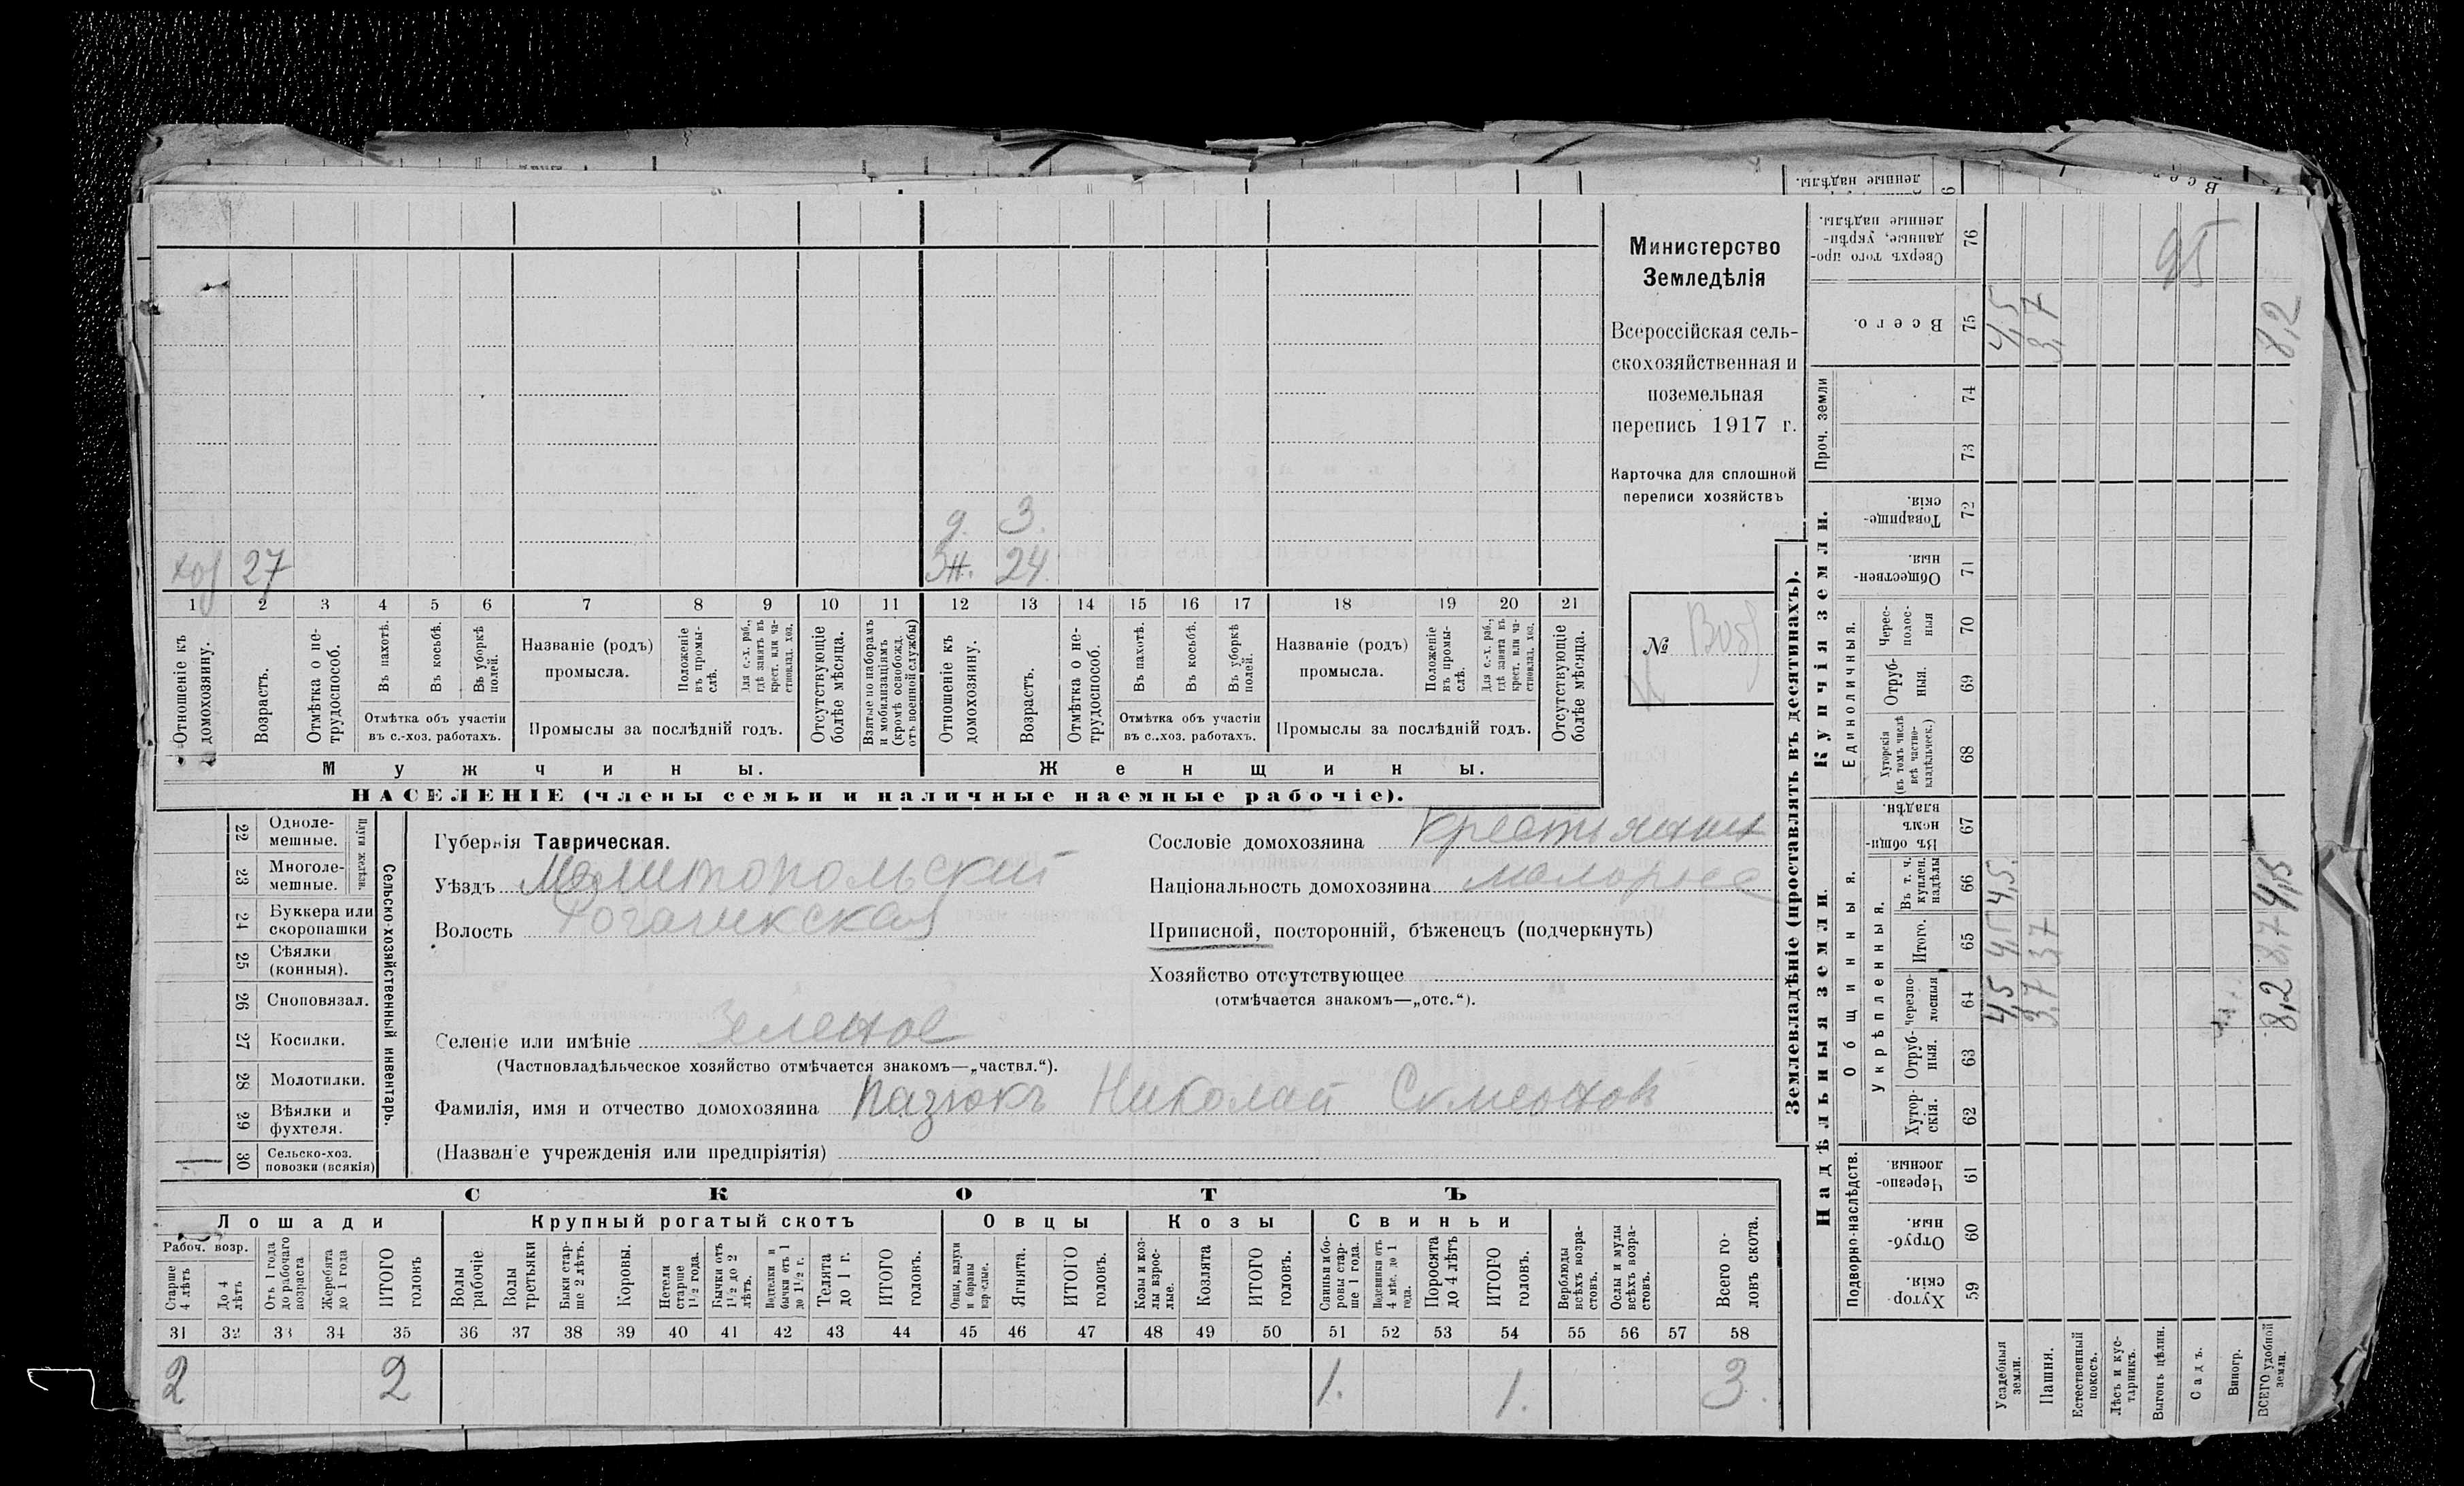 Министерство
Земледѣлія
Всероссійская сель-
скохозяйственная и
поземельная
перепись 1917 г.
Карточка для сплошной
переписи хозяйствъ
№
д. 3.
хоз 27 Ж. 24.
1 2 3 4 5 6 7 8 9 10 11 12 13 14 15 16 17 18 19 20 21
Отношеніе къ домохозяину.
Возрастъ.
Отмѣтка о не-трудоспособ.
Въ пахотѣ.
Въ косьбѣ.
Въ уборкѣ полей.
Отмѣтка объ участіи
въ с.-хоз. работахъ.
Названіе (родъ)
промысла.
Положеніе въ промы-слѣ.
Для с.-х. раб., гдѣ занятъ въ крест. или ча-стновлад. хоз.
Промыслы за послѣдній годъ.
Отсутствующіе болѣе мѣсяца.
Взятые по наборамъ и мобилизаціямъ (кромѣ освобожд. отъ военной службы)
Отношеніе къ домохозяину.
Возрастъ.
Отмѣтка о не-трудоспособ.
Въ пахотѣ.
Въ косьбѣ.
Въ уборкѣ полей.
Отмѣтка объ участіи
въ с..хоз. работахъ.
Названіе (родъ)
промысла.
Положеніе въ промы-слѣ.
Для с.-х. раб., гдѣ занята въ крест. или ча-стновлад. хоз.
Промыслы за послѣдній годъ.
Отсутствующіе болѣе мѣсяца.
Мужчины. Женщины.
НАСЕЛЕНІЕ (члены семьи и наличные наемные рабочіе).
Сельско-хозяйственный инвентарь.
Плуги желѣзн.
22 Одноле-мешные.
23 Многоле-мешные.
24 Буккера или скоропашки
25 Сѣялки (конныя).
26 Сноповязал.
27 Косилки.
28 Молотилки.
29 Вѣялки и фухтеля.
30 Сельско-хоз. повозки (всякія)
Губернія Таврическая.
Уѣздъ Мелитопольский
Волость Рогачикская
Селеніе или имѣніе Зеленое
(Частновладѣльческое хозяйство отмѣчается знакомъ—„частвл.“).
Фамилія, имя и отчество домохозяина Пазюкъ Николай
(Названіе учрежденія или предпріятія)
Сословіе домохозяина крестьянин
Національность домохозяина малорос
Приписной, посторонній, бѣженецъ (подчеркнуть)
Хозяйство отсутствующее
(отмѣчается знакомъ—„отс.“).
СКОТЪ
Лошади Крупный рогатый скотъ Овцы Козы Свиньи
Рабоч. возр.
Старше 4 лѣтъ
До 4 лѣтъ
Отъ 1 года до рабочаго возраста
Жеребята до 1 года
ИТОГО головъ
Волы рабочіе
Волы третьяки
Быки стар-ше 2 лѣтъ.
Коровы.
Нетели старше 1½ года.
Бычки отъ 1½ до 2 лѣтъ.
Подтелки и бычки отъ 1 до 1½ г.
Телята до 1 г.
ИТОГО головъ.
Овцы, валухи и бараны взрослые.
Ягнята.
ИТОГО головъ.
Козы и коз-лы взрос-лые.
Козлята
ИТОГО головъ.
Свиньи и бо-ровы стар-ше 1 года.
Подсвинки отъ 4 мѣс. до 1 года.
Поросята до 4 лѣтъ
ИТОГО головъ.
Верблюды всѣхъ возра-стовъ.
Ослы и мулы всѣхъ возра-стовъ.
Всего го-ловъ скота.
31 32 33 34 35 36 37 38 39 40 41 42 43 44 45 46 47 48 49 50 51 52 53 54 55 56 57 58
2 2 1. 1. 3.
Землевладѣніе (проставлять въ десятинахъ).
Надѣльныя земли. Купчія земли.
Проч. земли
Подворно-наслѣдств.
Общинныя.
Укрѣпленныя.
Единоличныя.
Хутор-скія. 59
Отруб-ныя. 60
Черезпо-лосныя. 61
Хутор-скія. 62
Отруб-ныя. 63
Черезпо-лосныя 64
Итого. 65
Въ т. ч. куплен. надѣлы 66
Въ общи-номъ владѣн. 67
Хуторскія (въ томъ числѣ всѣ частно-владѣльческ.) 68
Отруб-ныя. 69
Черес-полос-ныя 70
Обществен-ныя 71
Товарище-скія. 72
73
74
Всего. 75
Сверхъ того про-данные, укрѣп-ленные надѣлы. 76
Усадебныя земли. 4,5 4,5 4,5. 4,5
Пашня. 3,7 3,7 3,7
Естественный покосъ.
Лѣсъ и кус-тарникъ.
Выгонъ цѣлин.
Садъ.
Виногр.
ВСЕГО удобной земли. 8,2 8,7 4,5 8,2
95